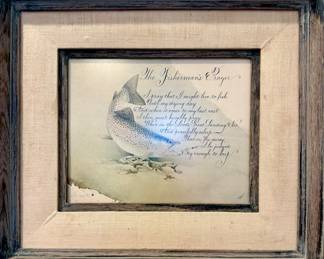 The Fisherman's Prayer
I pray that I might live to fish
Until my dying day
And when it comes to my last cast
I then most humbly pray
When in the Lord's
And peacefully asleep
That in His mercy
I be judged
Big enough to keep